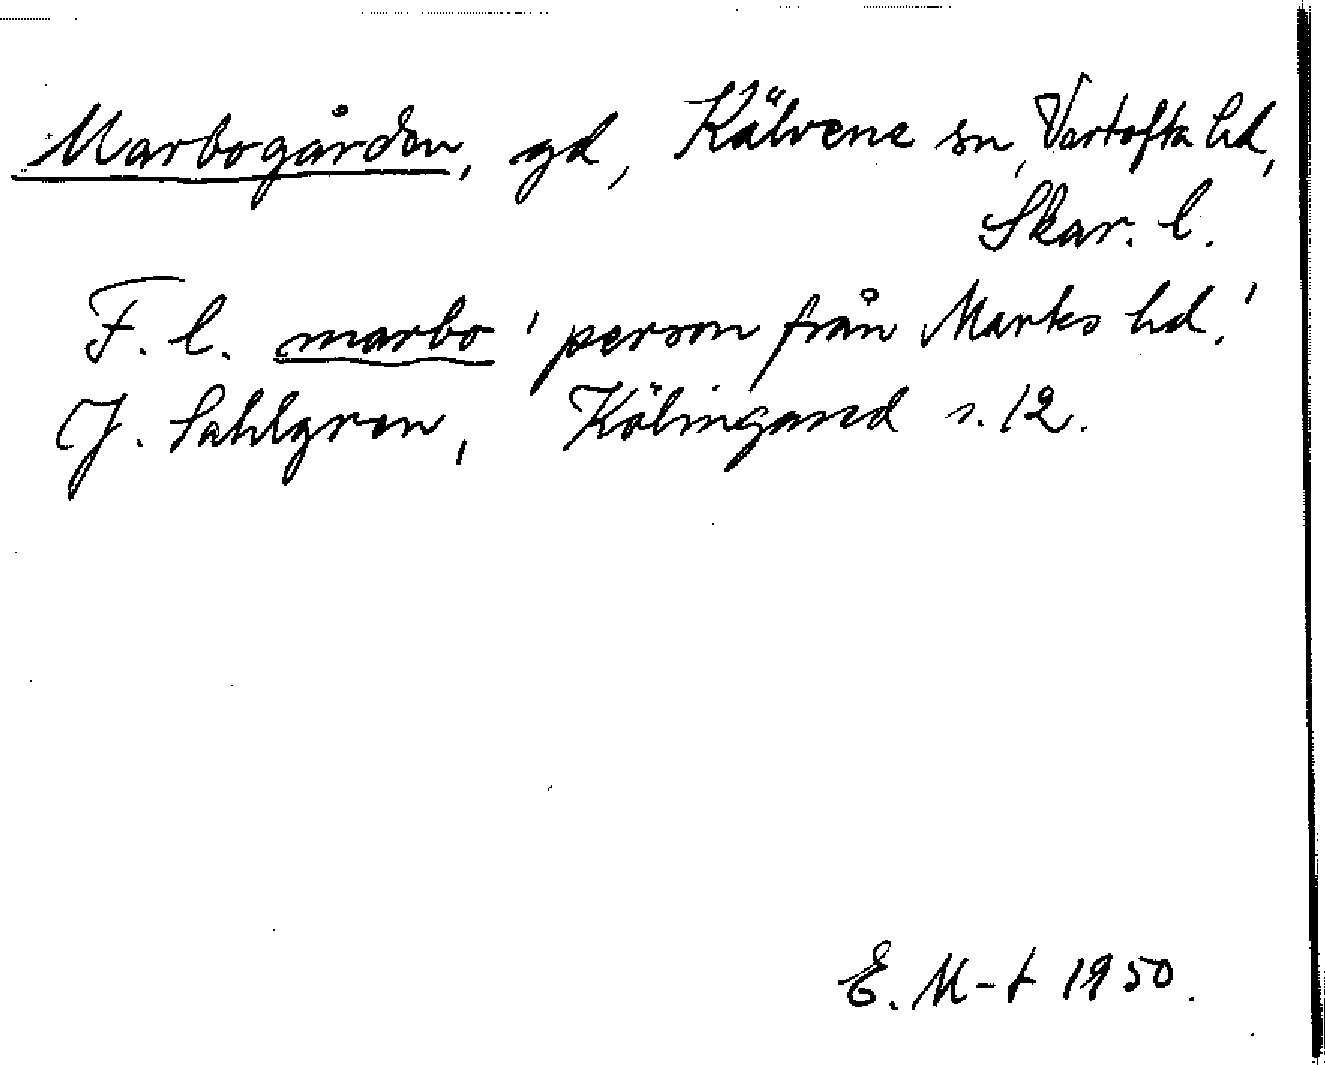 Marbogården, gd, Kälvene sn, Vartofta hd,
Skar. l.
F. l. marbo 'person från Marks hd.'
J. Sahlgren, Kölingared s. 12.
E. M-t 1950.